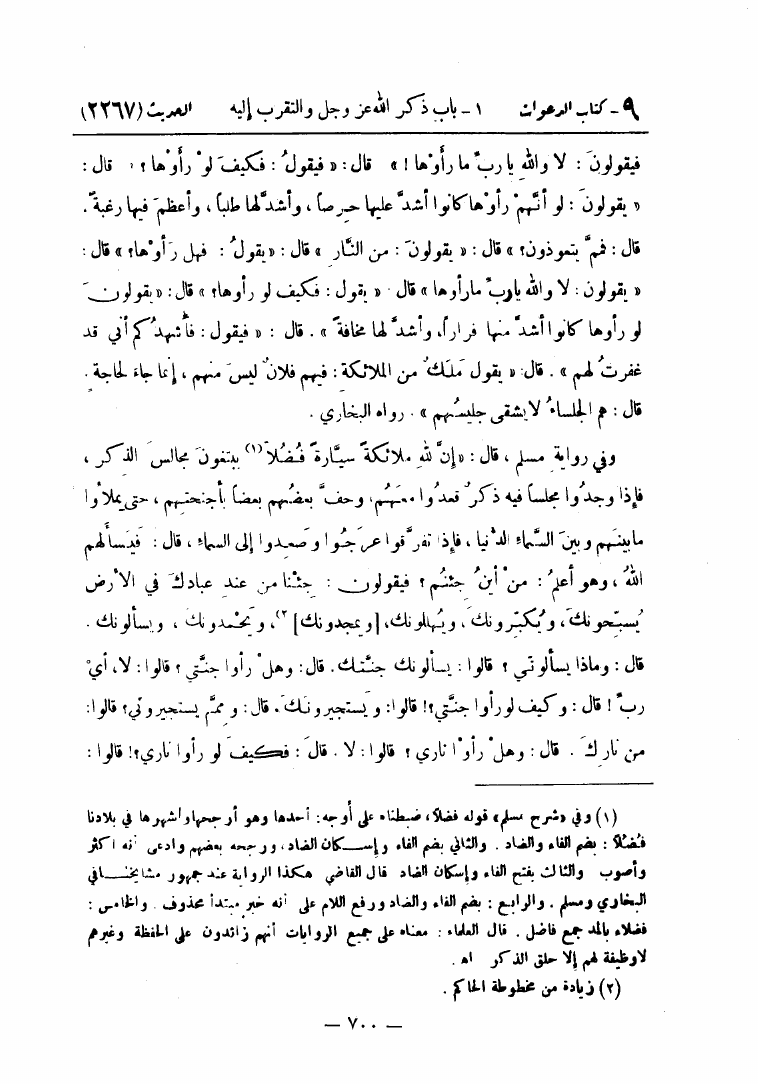 ٩ - كتاب الدعوات ١ - باب ذكر الله عز وجل والتقرب إليه الحديث (٢٢٦٧)
فيقولونَ : لا واللهِ يا ربِّ ما رأَوْها ! » قال : « فيقولُ : فكيفَ لوْ رأَوْها ؟ قال :
« يقولونَ : لو أنَّهمْ رأوْها كانوا أشدَّ عليها حرصاً ، وأشدَّ لها طلباً ، وأعظمَ فيها رغبةً .
قال : فممَّ يتعوذون؟ » قال : « يقولونَ : من النَّارِ » قال : « يقولُ : فهل رَأوْها؟ » قال :
« يقولون : لا والله ياربِّ مارأوها » قال « يقول : فكيف لو رأوها؟ » قال : « يقولونَ
لو رأوها كانوا أشدَّ منها فراراً، وأشدَّ لها مخافةً » . قال : « فيقول : فأُشهدُكم أني قد
غفرتُ لهم » . قال : « يقول مَلَكٌ من الملائكة : فيهم فلانٌ ليسَ منهم ، إنما جاءَ لحاجة .
قال : هم الجلساءُ لا يشقى جليسُهم » . رواه البخاري .
وفي رواية مسلم ، قال : « إنَّ للهِ ملائكةً سيَّارةً فُضُلاً (١) يبتغونَ مجالسَ الذكر ،
فإذا وجدُوا مجلساً فيه ذكرٌ قعدُوا معهُم، وحفَّ بعضُهم بعضاً بأجنحتهم ، حتى يملأوا
مابينهم وبينَ السَّماءِ الدُّنيا ، فإذا تفرَّقوا عرجُوا وصعِدوا إلى السماءِ ، قال : فيَسألهم
اللهُ ، وهو أعلمُ : منْ أينَ جئتُم ؟ فيقولون : جئنا من عندِ عبادكَ في الأرض
يُسبّحونكَ ، ويُكبّرونكَ ، ويُهللونك، [ويمجدونك] (٢)، ويَحمدونك ، ويسألونك .
قال : وماذا يسألوني ؟ قالوا : يسألونك جنَّتك. قال : وهلْ رأوا جنَّتي ؟ قالوا : لا، أيْ
ربِّ ! قال : وكيف لو رأوا جنَّتي؟! قالوا : ويَستجيرونكَ. قال : وممَّ يستجيروني؟ قالوا :
من ناركَ . قال : وهلْ رأوْا ناري ؟ قالوا : لا . قالَ : فكيفَ لو رأوا ناري؟! قالوا :
(١) وفي «شرح مسلم» قوله فضلاً، ضبطناه على أوجه : أحدها وهو أرجحها وأشهرها في بلادنا
فُضُلاً : بضم الفاء والضاد . والثاني بضم الفاء وإسكان الضاد ، ورجحه بعضهم وادعى أنه أكثر
وأصوب والثالث بفتح الفاء وإسكان الضاد قال القاضي هكذا الرواية عند جمهور مشايخنا في
البخاري ومسلم . والرابع : بضم الفاء والضاد ورفع اللام على أنه خبر مبتدأ محذوف . والخامس :
فضلاء بالمد جمع فاضل . قال العلماء : معناه على جميع الروايات أنهم زائدون على الحفظة وغيرهم
لاوظيفة لهم إلا حلق الذكر اهـ .
(٢) زيادة من مخطوطة الحاكم .
— ٧٠٠ —